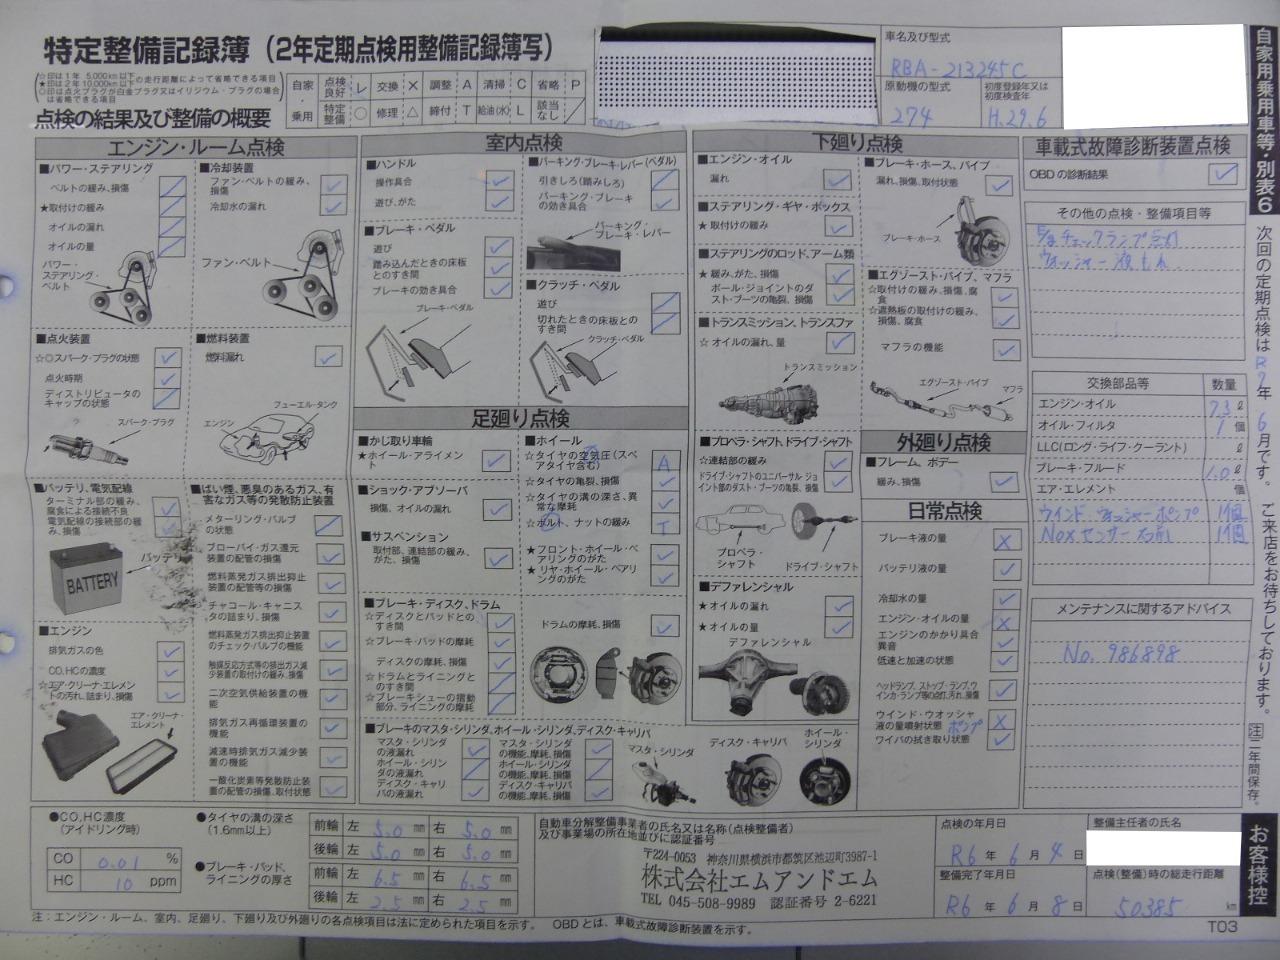 特定整備記録簿(2年定期点検用整備記録簿写)
☆印は1年 5,000km以下の走行距離によって省略できる項目
★印は2年10,000km以下
◎印は点火プラグが白金プラグ又はイリジウム・プラグの場合は省略できる項目
点検の結果及び整備の概要
自家・乗用
点検良好 レ 交換 × 調整 A 清掃 C 省略 P
特定整備 ○ 修理 △ 締付 T 給油(水) L 該当なし ／
車名及び型式
RBA-213245C
原動機の型式
274
初度登録年又は初度検査年
H.29.6
自家用乗用車等・別表6
エンジン・ルーム点検
■パワー・ステアリング
ベルトの緩み、損傷
★取付けの緩み
オイルの漏れ
オイルの量
パワー・ステアリング・ベルト
■冷却装置
ファン・ベルトの緩み、損傷
冷却水の漏れ
ファン・ベルト
■点火装置
☆◎スパーク・プラグの状態
点火時期
ディストリビュータのキャップの状態
スパーク・プラグ
■燃料装置
燃料漏れ
フューエル・タンク
エンジン
■バッテリ、電気配線
ターミナル部の緩み、腐食による接続不良
電気配線の接続部の緩み、損傷
バッテリ
BATTERY
■ばい煙、悪臭のあるガス、有害なガス等の発散防止装置
メターリング・バルブの状態
ブローバイ・ガス還元装置の配管の損傷
燃料蒸発ガス排出抑止装置の配管等の損傷
チャコール・キャニスタの詰まり、損傷
燃料蒸発ガス排出抑止装置のチェック・バルブの機能
触媒反応方式等の排出ガス減少装置の取付けの緩み、損傷
二次空気供給装置の機能
排気ガス再循環装置の機能
減速時排気ガス減少装置の機能
一酸化炭素等発散防止装置の配管の損傷、取付状態
■エンジン
排気ガスの色
CO、HCの濃度
☆エア・クリーナ・エレメントの汚れ、詰まり、損傷
エア・クリーナ・エレメント
室内点検
■ハンドル
操作具合
遊び、がた
■ブレーキ・ペダル
遊び
踏み込んだときの床板とのすき間
ブレーキの効き具合
ブレーキ・ペダル
■パーキング・ブレーキ・レバー(ペダル)
引きしろ(踏みしろ)
パーキング・ブレーキの効き具合
パーキング・ブレーキ・レバー
■クラッチ・ペダル
遊び
切れたときの床板とのすき間
クラッチ・ペダル
足廻り点検
■かじ取り車輪
★ホイール・アライメント
■ショック・アブソーバ
損傷、オイルの漏れ
■サスペンション
取付部、連結部の緩み、がた、損傷
■ホイール
☆タイヤの空気圧(スペアタイヤ含む) A
☆タイヤの亀裂、損傷
☆タイヤの溝の深さ、異常な摩耗
☆ボルト、ナットの緩み T
★フロント・ホイール・ベアリングのがた
★リヤ・ホイール・ベアリングのがた
■ブレーキ・ディスク、ドラム
☆ディスクとパッドとのすき間
☆ブレーキ・パッドの摩耗
ディスクの摩耗、損傷
☆ドラムとライニングとのすき間
☆ブレーキシューの摺動部分、ライニングの摩耗
ドラムの摩耗、損傷
■ブレーキのマスタ・シリンダ、ホイール・シリンダ、ディスク・キャリパ
マスタ・シリンダの液漏れ
ホイール・シリンダの液漏れ
ディスク・キャリパの液漏れ
マスタ・シリンダの機能、摩耗、損傷
ホイール・シリンダの機能、摩耗、損傷
ディスク・キャリパの機能、摩耗、損傷
マスタ・シリンダ
ディスク・キャリパ
ホイール・シリンダ
下廻り点検
■エンジン・オイル
漏れ
■ステアリング・ギヤ・ボックス
★取付けの緩み
■ステアリングのロッド、アーム類
★緩み、がた、損傷
ボール・ジョイントのダスト・ブーツの亀裂、損傷
■トランスミッション、トランスファ
☆オイルの漏れ、量
トランスミッション
■プロペラ・シャフト、ドライブ・シャフト
☆連結部の緩み
ドライブ・シャフトのユニバーサル ジョイント部のダスト・ブーツの亀裂、損傷
プロペラ・シャフト
ドライブ・シャフト
■デファレンシャル
★オイルの漏れ
★オイルの量
デファレンシャル
■ブレーキ・ホース、パイプ
漏れ、損傷、取付状態
ブレーキ・ホース
■エグゾースト・パイプ、マフラ
☆取付けの緩み、損傷、腐食
☆遮熱板の取付けの緩み、損傷、腐食
マフラの機能
エグゾースト・パイプ
マフラ
外廻り点検
■フレーム、ボデー
緩み、損傷
日常点検
ブレーキ液の量 ×
バッテリ液の量
冷却水の量
エンジン・オイルの量 ×
エンジンのかかり具合 異音
低速と加速の状態
ヘッドランプ、ストップ・ランプ、ウインカ・ランプ等の点灯、汚れ、損傷
ウインド・ウオッシャ液の量噴射状態 ポンプ ×
ワイパの拭き取り状態
車載式故障診断装置点検
OBDの診断結果
その他の点検・整備項目等
E/gチェックランプ点灯
ウォッシャー液もれ
交換部品等 数量
エンジン・オイル 7.3 ℓ
オイル・フィルタ 1 個
LLC(ロング・ライフ・クーラント) ℓ
ブレーキ・フルード 1.0 ℓ
エア・エレメント 個
ウインド ウォッシャー ポンプ 1個
NOxセンサー 右前 1個
メンテナンスに関するアドバイス
No. 986898
次回の定期点検はR7年6月です。ご来店をお待ちしております。
注 二年間保存。
お客様控
●CO、HC濃度(アイドリング時)
CO 0.01 %
HC 10 ppm
●タイヤの溝の深さ(1.6mm以上)
前輪 左 5.0 mm 右 5.0 mm
後輪 左 5.0 mm 右 5.0 mm
●ブレーキ・パッド、ライニングの厚さ
前輪 左 6.5 mm 右 6.5 mm
後輪 左 2.5 mm 右 2.5 mm
自動車分解整備事業者の氏名又は名称(点検整備者)及び事業場の所在地並びに認証番号
〒224-0053 神奈川県横浜市都筑区池辺町3987-1
株式会社エムアンドエム
TEL 045-508-9989 認証番号 2-6221
点検の年月日
R6年 6月 4日
整備完了年月日
R6年 6月 8日
整備主任者の氏名
点検(整備)時の総走行距離
50385 km
注:エンジン・ルーム、室内、足廻り、下廻り及び外廻りの各点検項目は法に定められた項目を示す。 OBDとは、車載式故障診断装置を示す。
T03